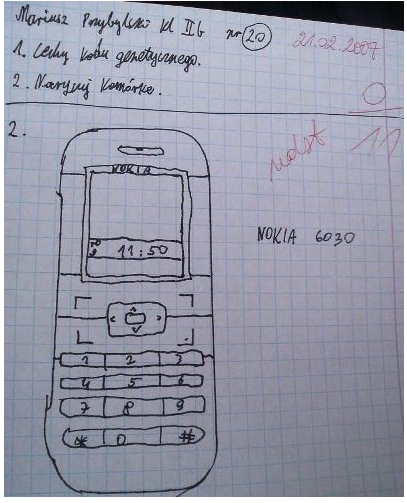 Mariusz Przybylski kl IIb nr 20 21.02.2007
1. Cechy kodu genetycznego.
2. Narysuj komórkę.
0
2.
ndst
NOKIA
NOKIA 6030
11:50
1 2 3
4 5 6
7 8 9
* 0 #